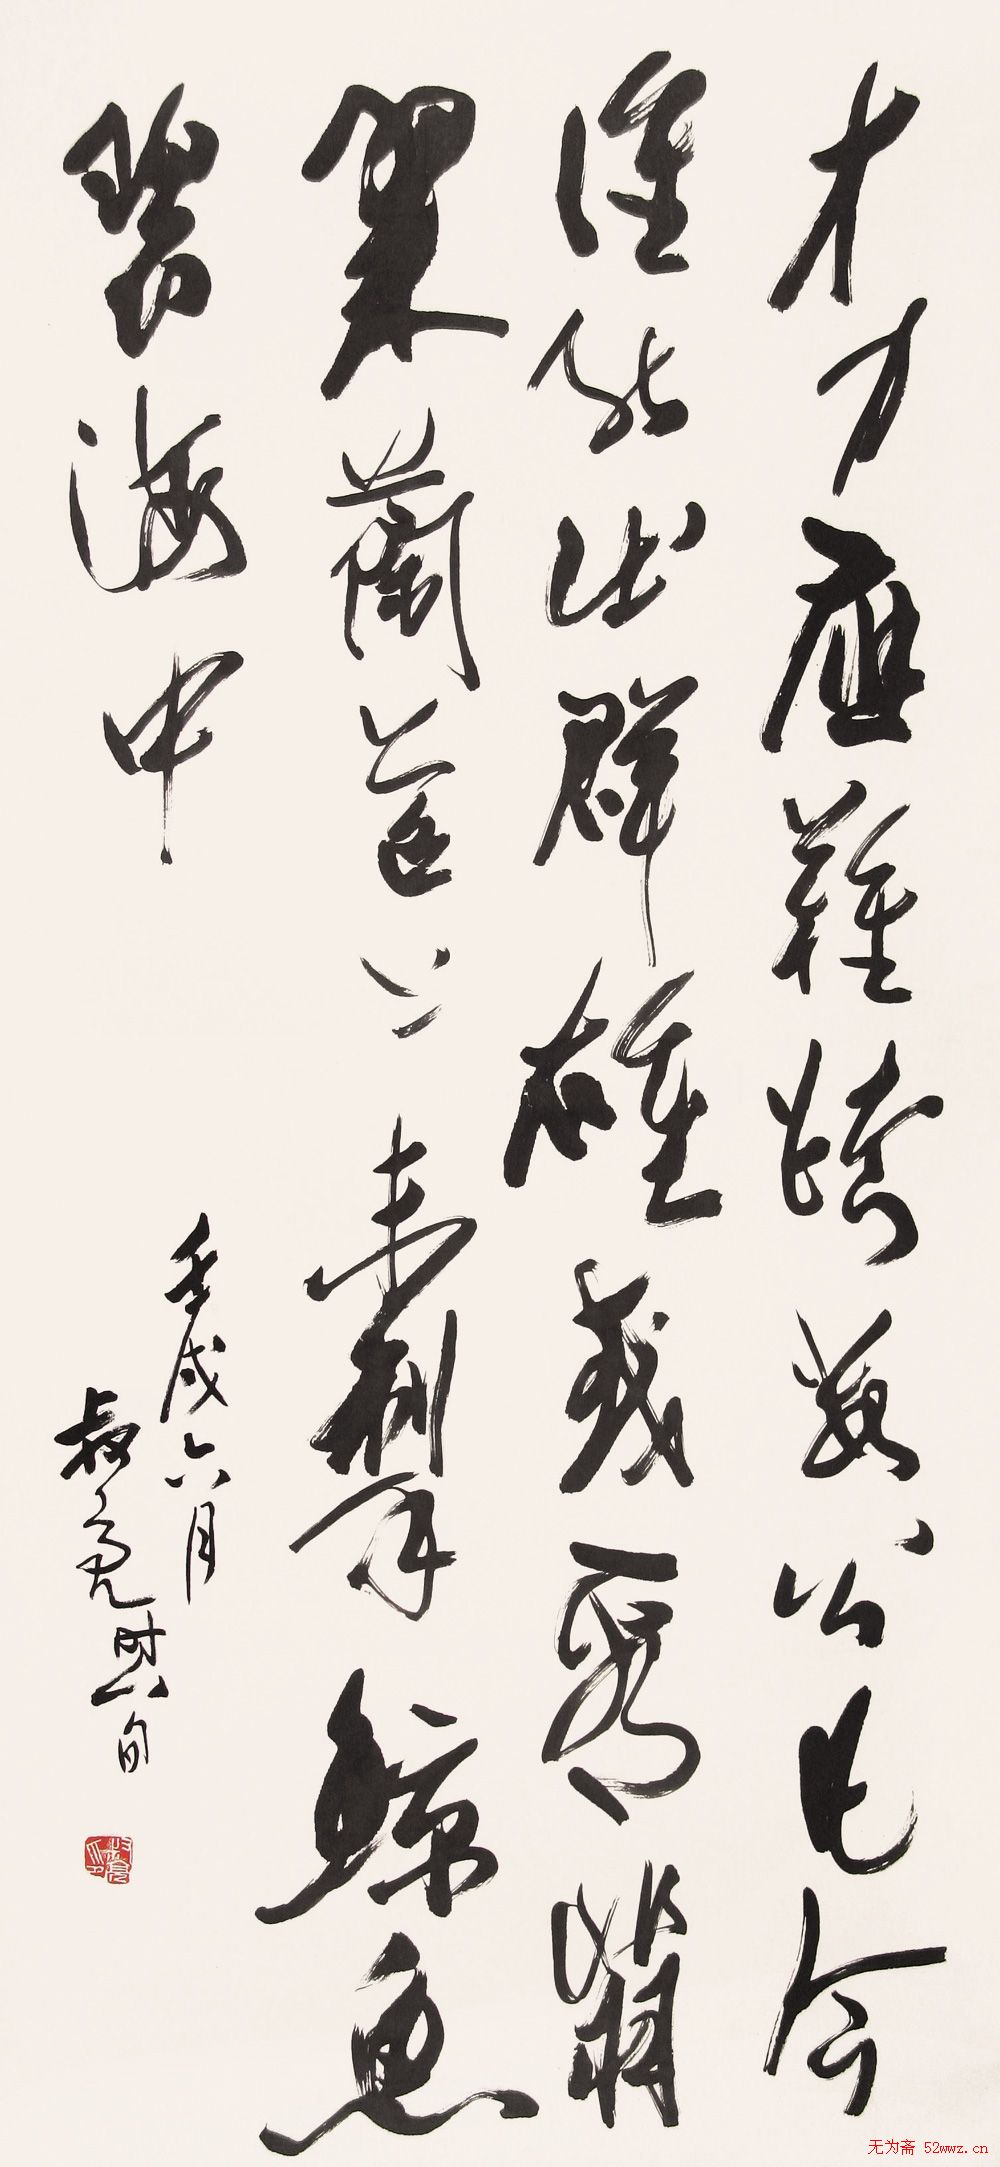 才力应难跨数公凡今
谁能出群雄或看翡
翠兰苕上未掣鲸鱼
碧海中
壬戌六月
叔亮时八旬
无为斋 52wwz.cn